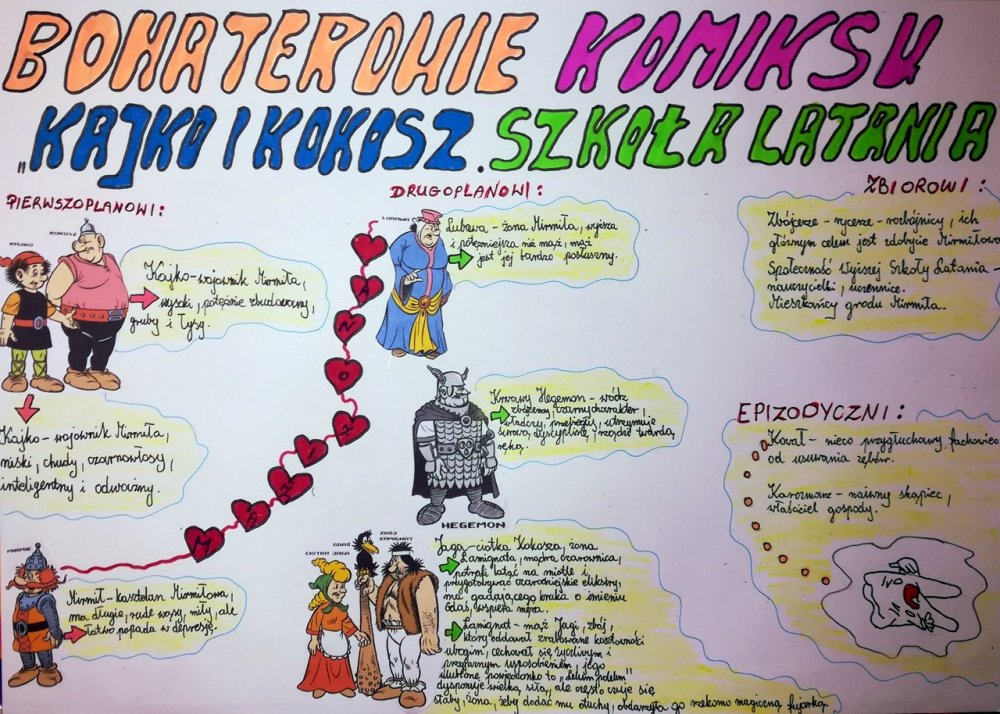 BOHATEROWIE KOMIKSU
„KAJKO I KOKOSZ. SZKOŁA LATANIA
PIERWSZOPLANOWI:
KAJKO
KOKOSZ
Kajko-wojownik Mirmiła,
wysoki, potężnie zbudowany,
gruby i łysy.
Kajko-wojownik Mirmiła,
niski, chudy, czarnowłosy,
inteligentny i odważny.
MIRMIŁ
Mirmił-kasztelan Mirmiłowa,
ma długie, rude wąsy, miły, ale
łatwo popada w depresję.
MAŁŻONKA
DRUGOPLANOWI:
LUBAWA
Lubawa - żona Mirmiła, wyższa
i potężniejsza niż mąż, mąż
jest jej bardzo posłuszny.
Krwawy Hegemon - wódz
zbójerzy, czarny charakter,
władczy, przebiegły, utrzymuje
surową dyscyplinę, rządzi twardą
ręką.
HEGEMON
CIOTKA JAGA
GDAŚ
ZBÓJ
ŁAMIGNAT
Jaga-ciotka Kokosza, żona
Łamignata, mądra czarownica,
potrafi latać na miotle i
przygotowywać czarodziejskie eliksiry,
ma gadającego kruka o imieniu
Gdaś, wspiera męża.
Łamignat - mąż Jagi, zbój,
który oddawał zrabowane kosztowności
ubogim, cechował się życzliwym i
przyjaznym usposobieniem, jego
ulubione powiedzonko to „Lelum polelum"
dysponuje wielką siłą, ale często czuje się
słaby, żona, żeby dodać mu otuchy, obdarzyła go rzekomo magiczną fujarką.
ZBIOROWI:
Zbójerze - rycerze - rozbójnicy, ich
głównym celem jest zdobycie Mirmiłowa
Społeczność Wyższej Szkoły Latania -
nauczycielki, uczennice.
Mieszkańcy grodu Mirmiła.
EPIZODYCZNI:
Kowal - nieco przygłuchawy fachowiec
od usuwania zębów.
Karczmarz - naiwny skąpiec,
właściciel gospody.